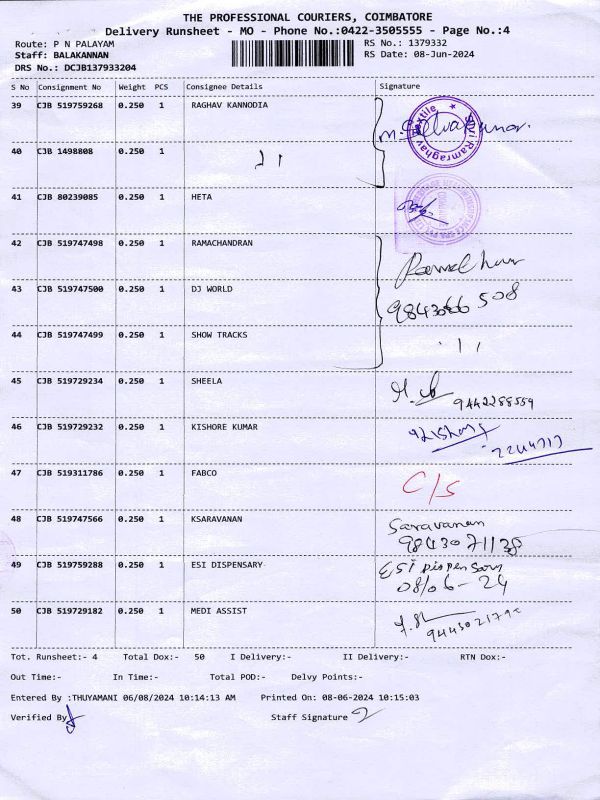 THE PROFESSIONAL COURIERS, COIMBATORE
Delivery Runsheet - MO - Phone No.:0422-3505555 - Page No.:4
Route: P N PALAYAM RS No.: 1379332
Staff: BALAKANNAN RS Date: 08-Jun-2024
DRS No.: DCJB137933204
S No Consignment No Weight PCS Consignee Details Signature
39 CJB 519759268 0.250 1 RAGHAV KANNODIA
40 CJB 1498808 0.250 1
41 CJB 80239085 0.250 1 HETA
42 CJB 519747498 0.250 1 RAMACHANDRAN
43 CJB 519747500 0.250 1 DJ WORLD
44 CJB 519747499 0.250 1 SHOW TRACKS
45 CJB 519729234 0.250 1 SHEELA
9442288559
46 CJB 519729232 0.250 1 KISHORE KUMAR
47 CJB 519311786 0.250 1 FABCO C/S
48 CJB 519747566 0.250 1 KSARAVANAN Saravanan
9843071138
49 CJB 519759288 0.250 1 ESI DISPENSARY ESI Dispensary
08/06-24
50 CJB 519729182 0.250 1 MEDI ASSIST
Tot. Runsheet:- 4 Total Dox:- 50 I Delivery:- II Delivery:- RTN Dox:-
Out Time:- In Time:- Total POD:- Delvy Points:-
Entered By :THUYAMANI 06/08/2024 10:14:13 AM Printed On: 08-06-2024 10:15:03
Verified By Staff Signature